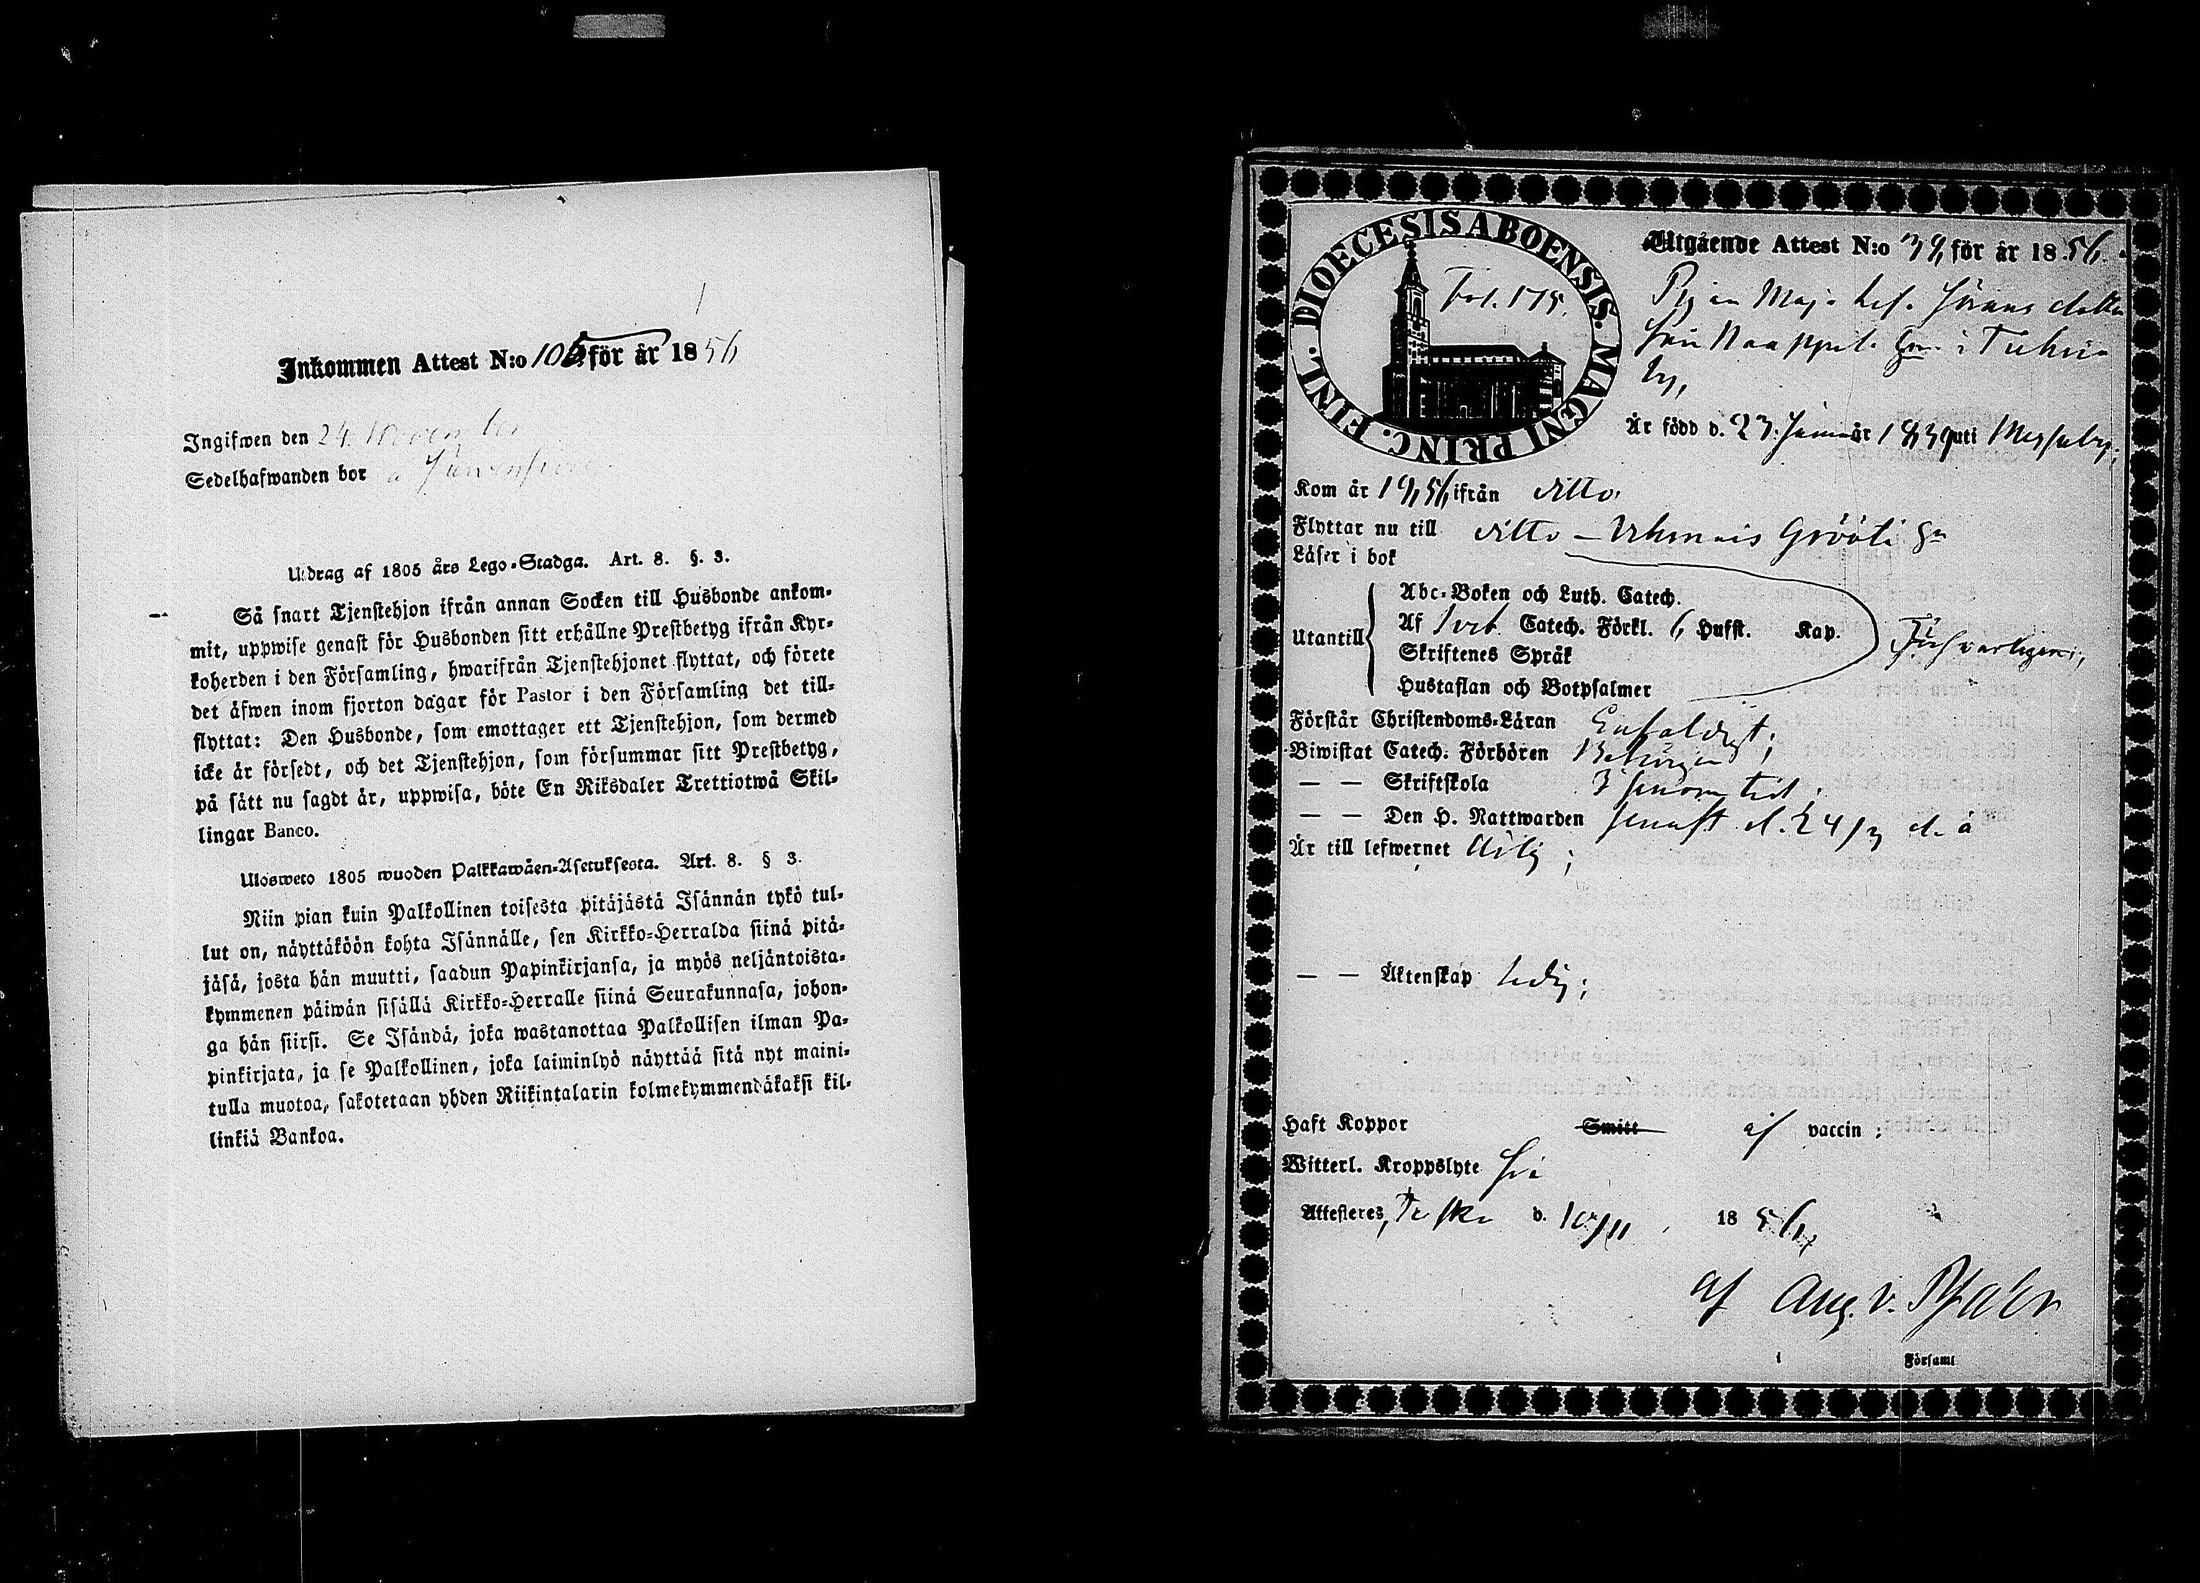 Inkommen Attest N:o 105 för år 1856
Ingifwen den 24 November
Sedelhafwanden bor
Utdrag af 1805 års Lego-Stadga. Art. 8. §. 3.
Så snart Tjenstehjon ifrån annan Socken till Husbonde ankom-
mit, uppwise genast för Husbonden sitt erhållne Prestbetyg ifrån Kyr-
koherden i den Församling, hwarifrån Tjenstehjonet flyttat, och förete
det äfwen inom fjorton dagar för Pastor i den Församling det till-
flyttat: Den Husbonde, som emottager ett Tjenstehjon, som dermed
icke är försedt, och det Tjenstehjon, som försummar sitt Prestbetyg,
på sätt nu sagdt är, uppwisa, böte En Riksdaler Trettiotwå Skil-
lingar Banco.
Ulosweto 1805 wuoden Palkkawäen-Asetuksesta. Art. 8. § 3.
Niin pian kuin Palkollinen toisesta pitäjästä Isännän tykö tul-
lut on, näyttäköön kohta Isännälle, sen Kirkko-Herralda siinä pitä-
jäsä, josta hän muutti, saadun Papinkirjansa, ja myös neljäntoista-
kymmenen päiwän sisällä Kirkko-Herralle siinä Seurakunnasa, johon-
ga hän siirsi. Se Isändä, joka wastanottaa Palkollisen ilman Pa-
pinkirjata, ja se Palkollinen, joka laiminlyö näyttää sitä nyt maini-
tulla muotoa, sakotetaan yhden Riikintalarin kolmekymmendäkaksi kil-
linkiä Bankoa.
DIOECESIS ABOENSIS. MAGNI PRINC. FINL.
Fol. 175.
Utgående Attest N:o 39 för år 1856.
Pigan Maja Lis. Jörans dotter
från Naappila i Tuhria
by,
Är född d. 23 Januar 1839 uti
Kom år 1856 ifrån ditto.
Flyttar nu till ditto –
Läser i bok
Abc-Boken och Luth. Catech.
Utantill Af Catech. Förkl. 6 Hufst. Kap.
Skriftenes Språk
Hustaflan och Botpsalmer
Förstår Christendoms-Läran Enfaldigt;
Biwistat Catech. Förhören Behörigen;
— — Skriftskola i sinom tid;
— — Den H. Nattwarden senast d. 24/3 d. å
Är till lefwernet ärlig;
— — Äktenskap ledig;
Haft Koppor Smitt af vaccin;
Witterl. Kroppslyte fri
Attesteres, d. 10/11 1856,
af Aug. v. Pfaler
i Församl